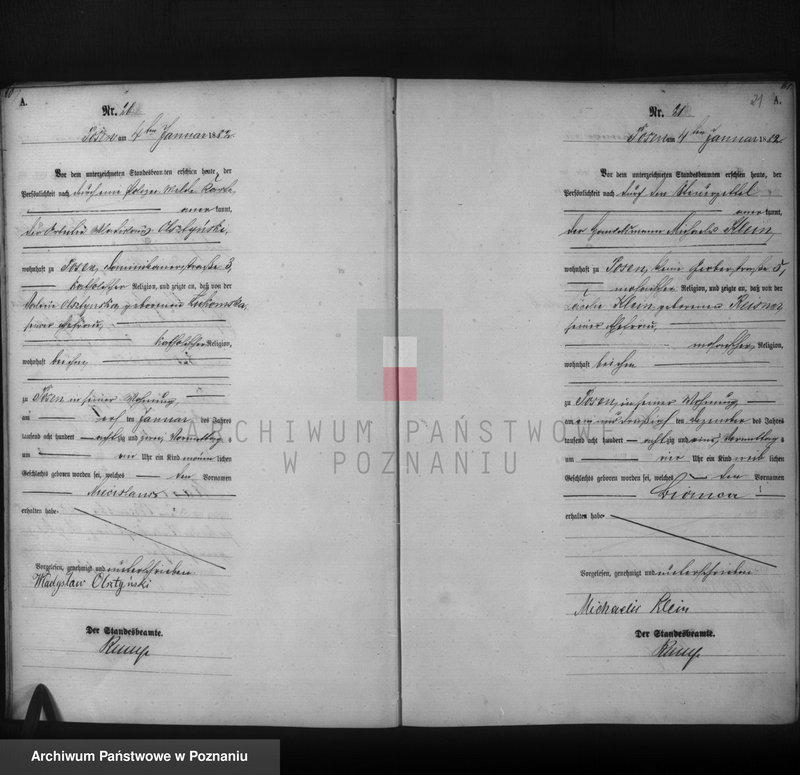 A.
Nr. 20
Posen am 4ten Januar 1882
Vor dem unterzeichneten Standesbeamten erschien heute, der
Persönlichkeit nach durch eine Polizei Melde Karte
anerkannt,
Olsztyński,
wohnhaft zu Posen, Dominikanerstraße 3,
katholischer Religion, und zeigte an, daß von der
Olsztynska, geborenen
seiner Ehefrau,
katholischer Religion,
wohnhaft bei ihm
zu Posen in seiner Wohnung
am ten Januar des Jahres
tausend acht hundert achtzig und zwei, Vormittags
um Uhr ein Kind männlichen
Geschlechts geboren worden sei, welches den Vornamen
erhalten habe
Vorgelesen, genehmigt und unterschrieben
Władysław Olsztyński
Der Standesbeamte.
Rump
21
A.
Nr. 21
Posen am 4ten Januar 1882
Vor dem unterzeichneten Standesbeamten erschien heute, der
Persönlichkeit nach durch den Steuerzettel
anerkannt,
der Handelsmann Michaelis Klein,
wohnhaft zu Posen, kleine Gerberstraße 5,
mosaischer Religion, und zeigte an, daß von der
Cäcilie Klein geborenen
seiner Ehefrau,
mosaischer Religion,
wohnhaft bei ihm
zu Posen, in seiner Wohnung
am ein und dreißigsten Dezember des Jahres
tausend acht hundert achtzig und eins, Vormittags
um vier Uhr ein Kind weiblichen
Geschlechts geboren worden sei, welches den Vornamen
Bianca
erhalten habe
Vorgelesen, genehmigt und unterschrieben
Michaelis Klein
Der Standesbeamte.
Rump
ARCHIWUM PAŃSTWOWE
W POZNANIU
Archiwum Państwowe w Poznaniu